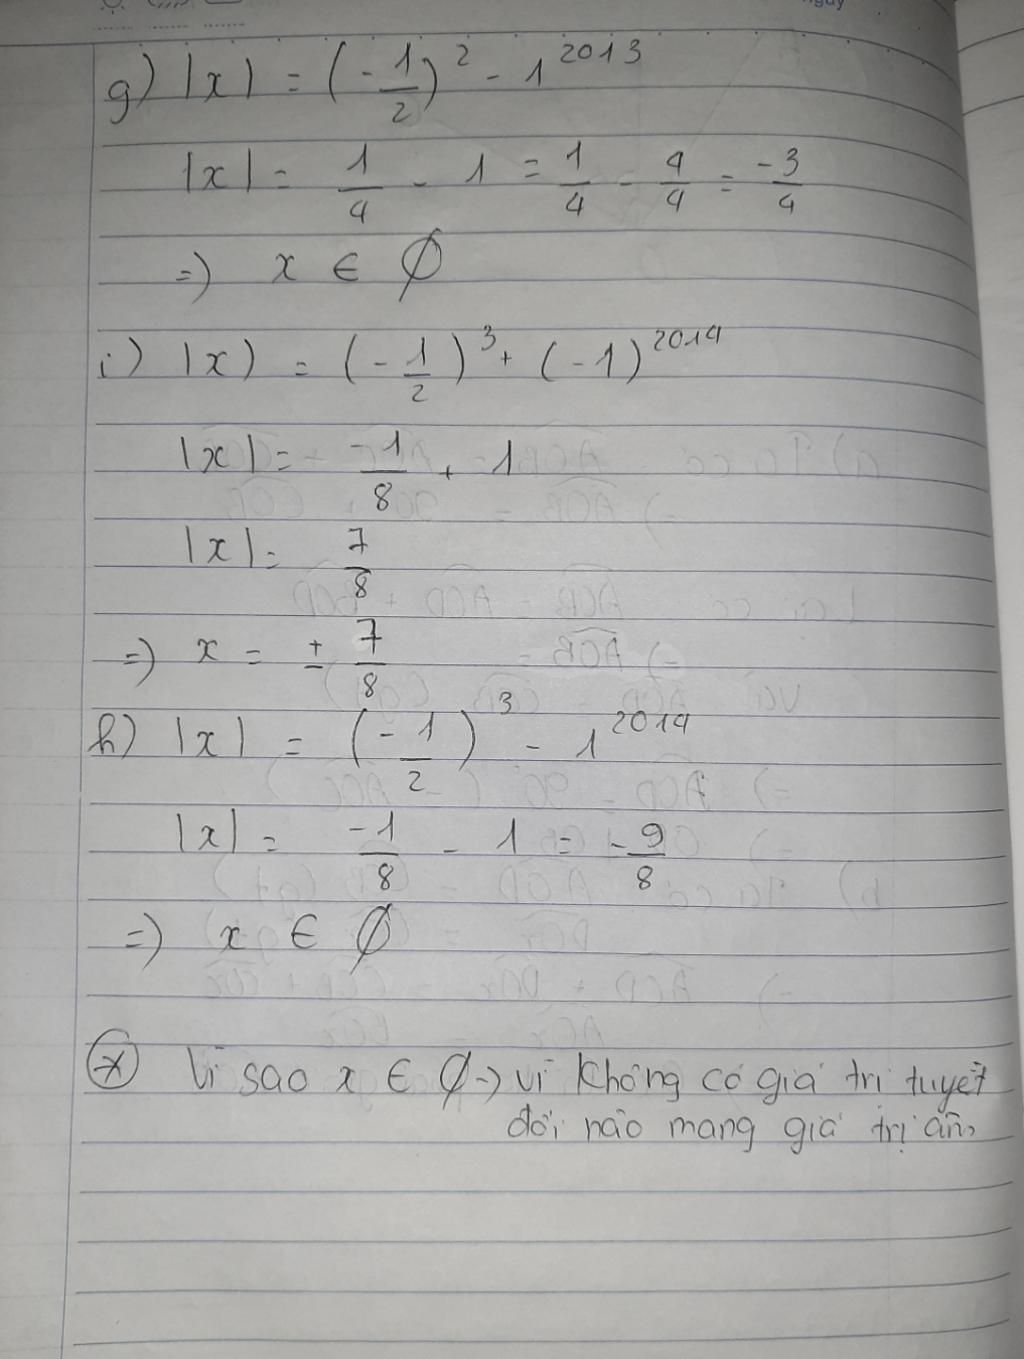 g) |x| = (-1/2)² - 1²⁰¹³
|x| = 1/4 - 1 = 1/4 - 4/4 = -3/4
=) x ∈ ∅
i) |x) = (-1/2)³ + (-1)²⁰¹⁴
|x| = -1/8 + 1
|x| = 7/8
=) x = ± 7/8
h) |x| = (-1/2)³ - 1²⁰¹⁴
|x| = -1/8 - 1 = -9/8
=) x ∈ ∅
* Vì sao x ∈ ∅ -) vì không có giá trị tuyệt
đối nào mang giá trị âm